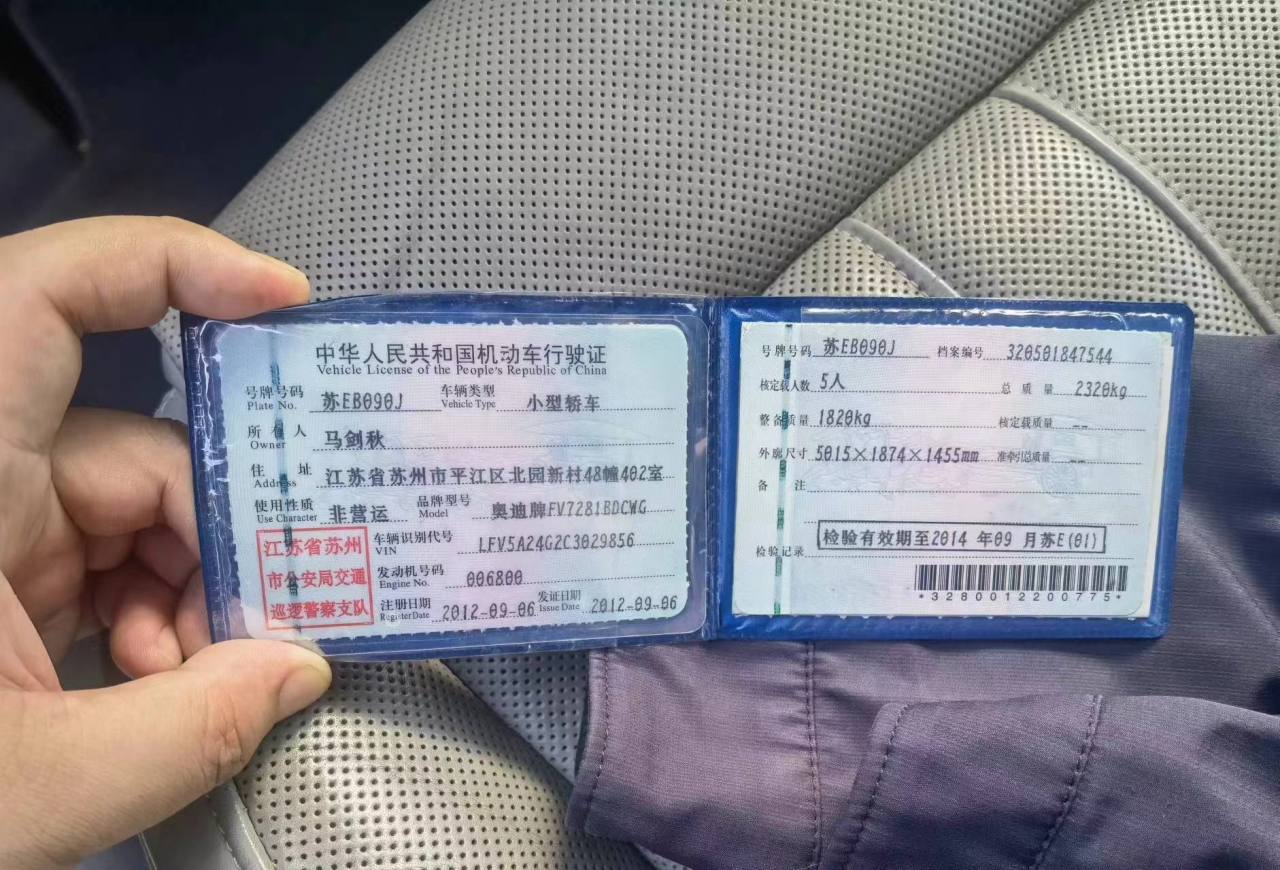 中华人民共和国机动车行驶证
Vehicle License of the People's Republic of China
号牌号码 苏EB090J 车辆类型 小型轿车
Plate No. Vehicle Type
所有人 马剑秋
Owner
住址 江苏省苏州市平江区北园新村48幢402室
Address
使用性质 非营运 品牌型号 奥迪牌FV7281BDCWG
Use Character Model
江苏省苏州
市公安局交通
巡逻警察支队
车辆识别代号 LFV5A24G2C3029856
VIN
发动机号码 006800
Engine No.
注册日期 2012-09-06 发证日期 2012-09-06
Register Date Issue Date
号牌号码 苏EB090J 档案编号 320501847544
核定载人数 5人 总质量 2320kg
整备质量 1820kg 核定载质量 --
外廓尺寸 5015×1874×1455mm 准牵引总质量 --
备注
检验记录 检验有效期至2014年09月苏E(01)
*3280012200775*